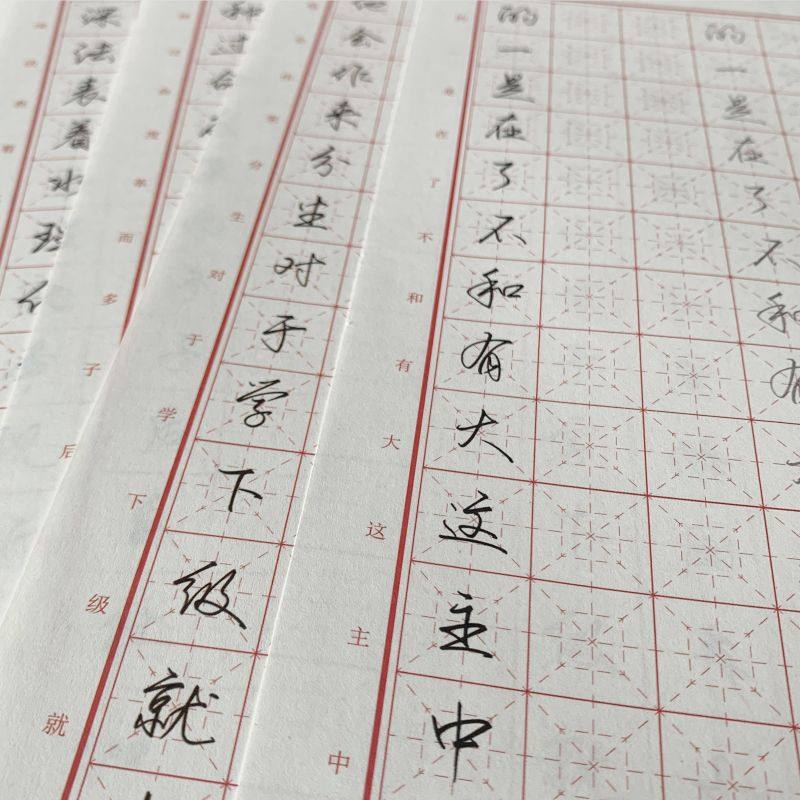 深法表着水理
而多子后
种过
分生对于学下级就
会作来分生对于学下级就
是在了不和有大这主中
的一是在了不和有大这主中
的一是在了不和有